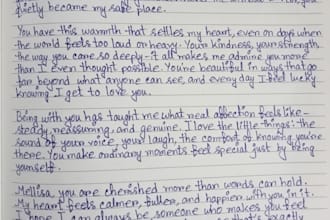 quietly became my safe place.
You have this warmth that settles my heart, even on days when
the world feels too loud or heavy. Your kindness, your strength,
the way you care so deeply - it all makes me admire you more
than I even thought possible. You're beautiful in ways that go
far beyond what anyone can see, and every day I feel lucky
knowing I get to love you.
Being with you has taught me what real affection feels like -
steady, reassuring, and genuine. I love the little things: the
sound of your voice, your laugh, the comfort of knowing you're
there. You make ordinary moments feel special just by being
yourself.
Mellisa, you are cherished more than words can hold.
My heart feels calmer, fuller, and happier with you in it.
I can always be someone who makes you feel